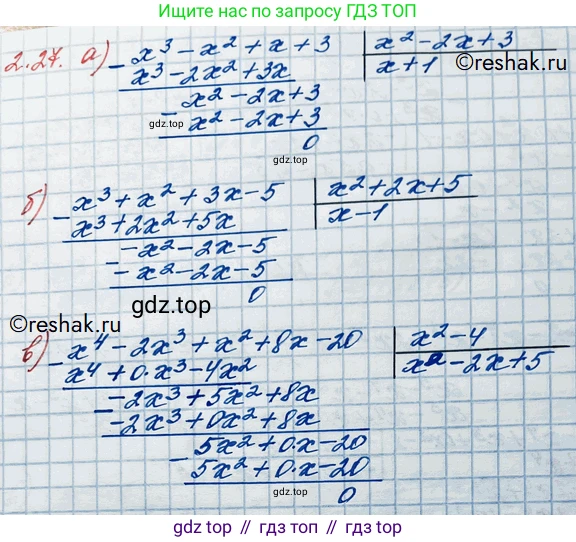 Ищите нас по запросу ГДЗ ТОП
2.27. а) - x³ - x² + x + 3 | x² - 2x + 3
x³ - 2x² + 3x | x + 1
©reshak.ru
x² - 2x + 3
gdz.top - x² - 2x + 3
0
б) - x³ + x² + 3x - 5 | x² + 2x + 5
x³ + 2x² + 5x | x - 1
- -x² - 2x - 5
-x² - 2x - 5
0
gdz.top
©reshak.ru
в) - x⁴ - 2x³ + x² + 8x - 20 | x² - 4
x⁴ + 0·x³ - 4x² | x² - 2x + 5
- -2x³ + 5x² + 8x
-2x³ + 0x² + 8x
5x² + 0·x - 20
- 5x² + 0·x - 20
gdz.top 0
©reshak.ru
gdz.top // gdz.top // gdz.top // gdz.top